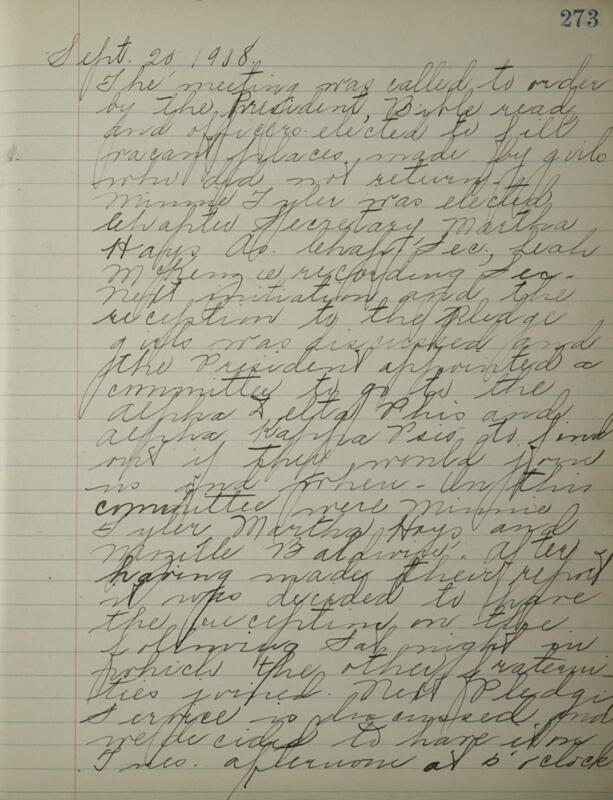 273
Sept. 20 1908.
The meeting was called to order
by the President, Bible read,
and officers elected to fill
vacant places made by girls
who did not return.
Minnie Tyler was elected
Chapter Secretary, Martha
Hays As. Chapt Sec, Leah
McKenzie recording Sec.
Next initiation and the
reception to the Pledge
girls was discussed and
the President appointed a
committee to go to the
Alpha Delta Phis and
Alpha Kappa Psis to find
out if they would join
us and when - On this
committee were Minnie
Tyler Martha Hays and
Baldwin. After
having made their report
it was decided to have
the reception on the
following Sat night in
which the other fraterni-
ties joined. Next Pledge
Service is discussed and
we decided to have it on
Tues. afternoon at 5 o'clock